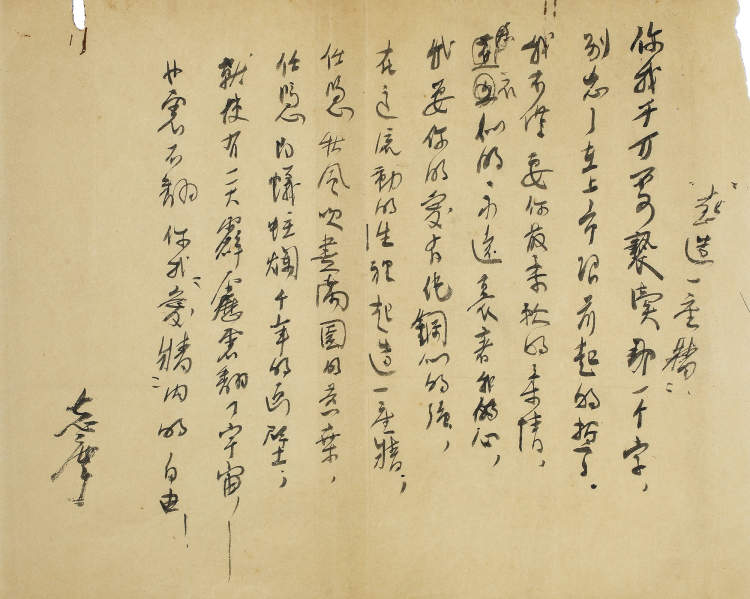 "起造一座牆"
你我千万不可褻瀆那一个字,
別忘了在上帝跟前起的誓。
我不僅要你最柔軟的柔情,
蕉衣似的,永遠裹着我的心,
我要你的愛有純鋼似的強,
在這流動的生裡起造一座牆;
任憑秋風吹盡滿園的黃葉,
任憑白蟻蛀爛千年的画壁;
就使有一天霹靂震翻了宇宙,—
也震不翻你我"愛牆"内的自由!
志摩